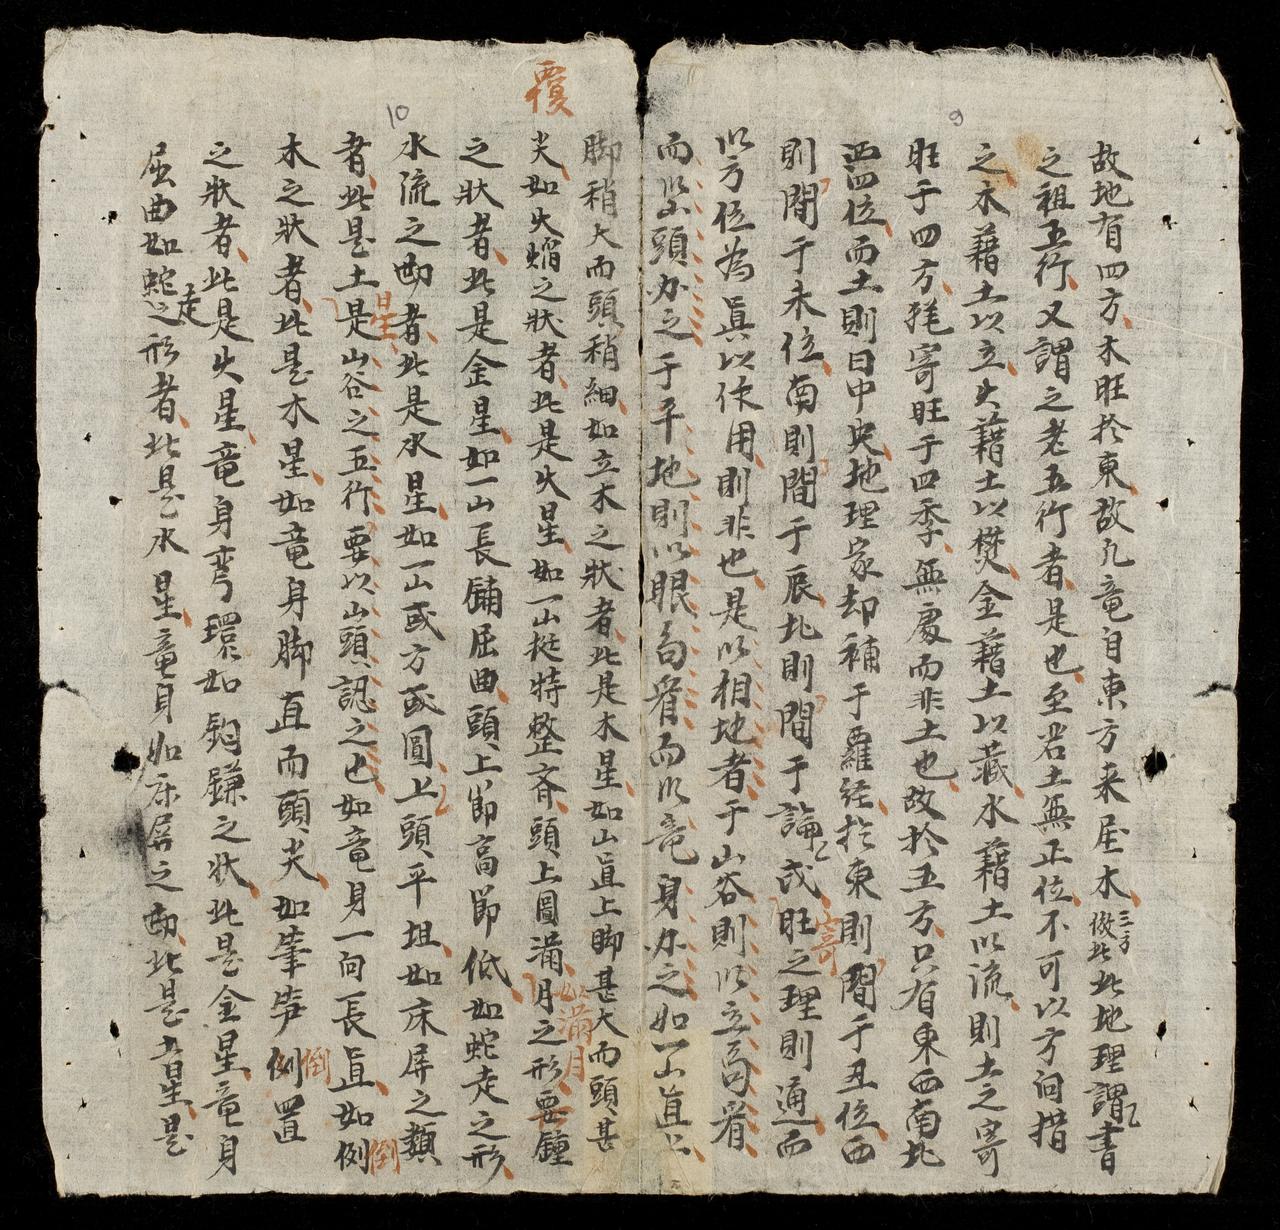 9
故地有四方木旺於東故凢竜自東方来屋木三方倣此此地理謂書
之祖五行又謂之老五行者是也至若土無正位不可以方向措
之木藉土以立火藉土以焚金藉土以藏水藉土以流則土之寄
旺于四方毪寄旺于四季無處而非土也故於五方只有東西南北
四位而土則曰中央地理家却補于羅経於東則間于丑位西
則間于未位南則間于辰北則間于論戌寄旺之理則通而
以方位為眞以作用則非也是以相地者于山谷則以立局看
而以山頭办之于平地則以眼局看而以竜身办之如一山直上
脚稍大而頭稍細如立木之狀者此是木星如山直上脚甚大而頭甚
覆
尖如火熖之狀者此是火星如一山挺特整齐頭上圓满如满月之形要鍾
之狀者此是金星如一山長鋪屈曲頭上節高節低如蛇走之形
10
水流之㔹者此是水星如一山或方或圓上頭平坦如床屏之類
者此是土星是山谷之五行要以山頭認之也如竜身一向長直如倒倒
木之狀者此是木星如竜身脚直而頭尖如筆笋倒倒置
之狀者此是火星竜身弯環如鈎鐮之狀此是金星竜身
屈曲如蛇走之形者此是水星竜身如床屏之㔹此是土星是